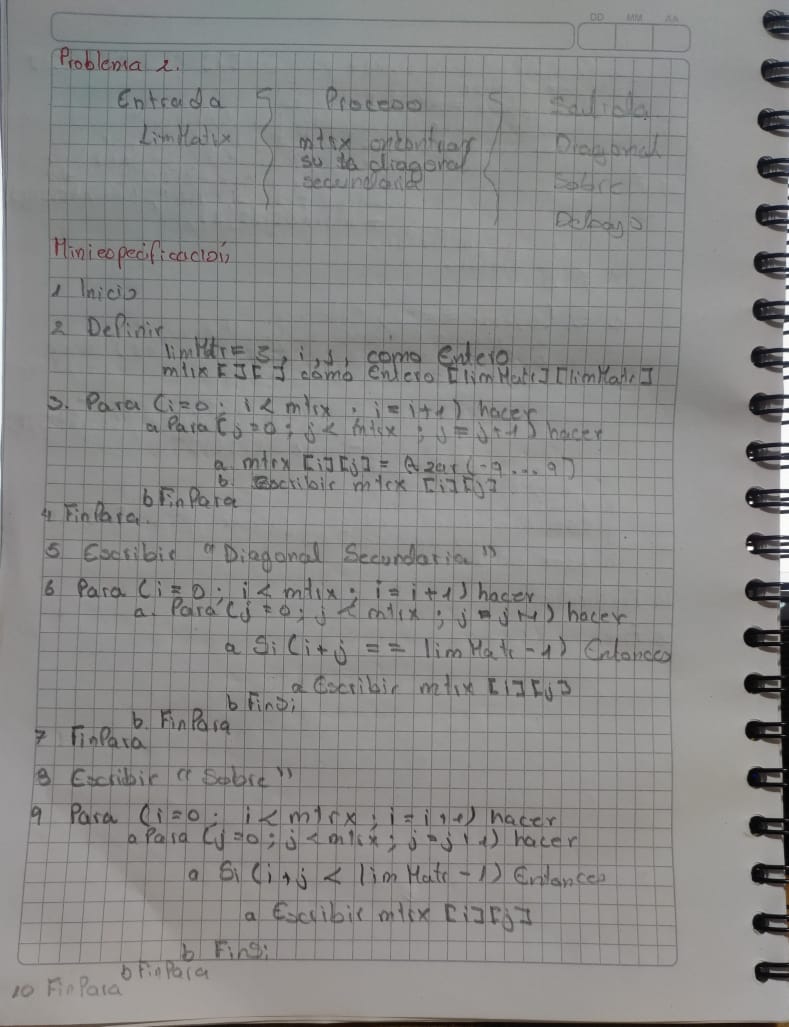 DD MM AA
Problema 2.
Entrada Proceso Salida
LimMatrx mtrx encontrar Diagonal
su la diagonal
secundaria Sobre
Debajo
Miniespecificación
1 Inicio
2 Definir
limMtr= 5, i, j, como Entero
mtrx [][] como entero [limMatr][limMatr]
3. Para (i=0; i< mtrx; i=i+1) hacer
a Para (j=0; j< mtrx; j=j+1) hacer
a mtrx [i][j] = Azar(-9...9)
b. Escribir mtrx [i][j]
b FinPara
4 FinPara.
5 Escribir "Diagonal Secundaria"
6 Para (i=0; i< mtrx; i=i+1) hacer
a. Para (j=0; j< mtrx; j=j+1) hacer
a Si (i+j == limMatr-1) Entonces
a Escribir mtrx [i][j]
b FinSi
b. FinPara
7 FinPara
8 Escribir "Sobre"
9 Para (i=0; i< mtrx; i=i+1) hacer
a Para (j=0; j<mtrx; j=j+1) hacer
a Si (i+j < limMatr-1) Entonces
a Escribir mtrx [i][j]
b FinSi
b FinPara
10 FinPara